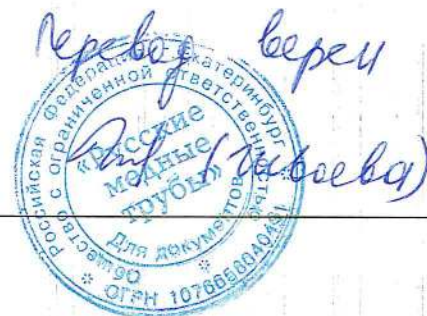 Перевод верен
Российская Федерация г. Екатеринбург
Общество с ограниченной ответственностью
«Русские
медные
трубы»
Для документов
* ОГРН